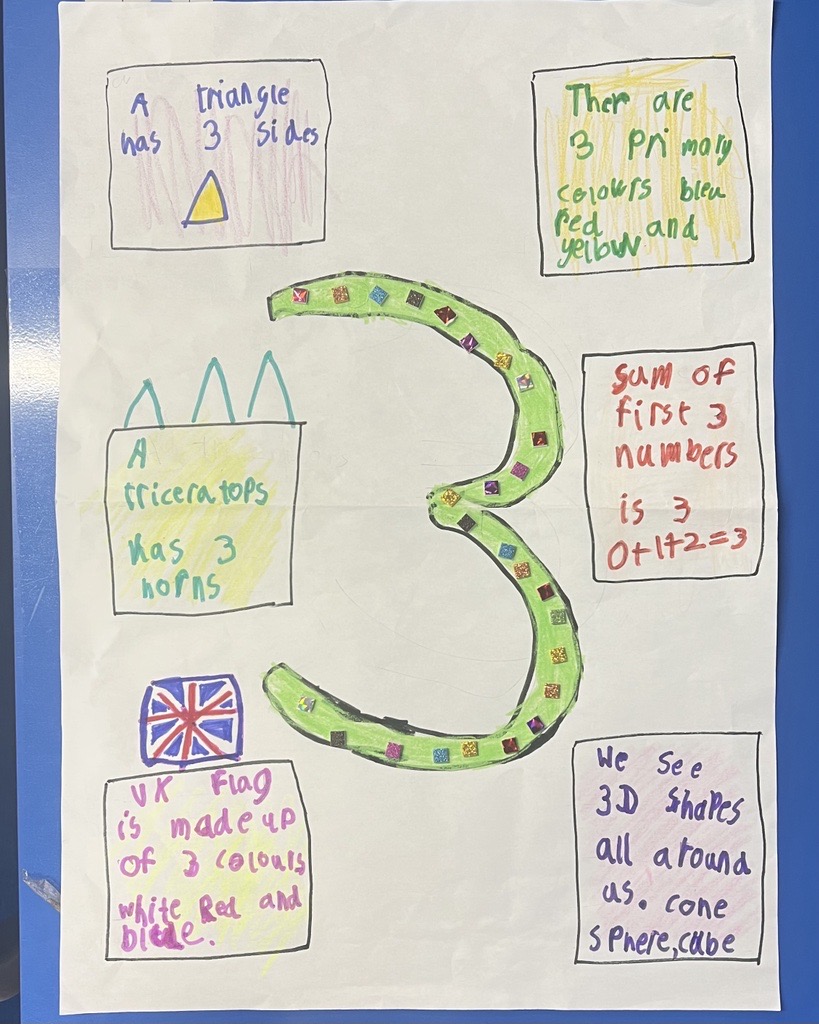 A triangle
has 3 sides
Ther are
3 Primary
colours bleu
red and
yellow
A
triceratops
has 3
horns
sum of
first 3
numbers
is 3
0+1+2=3
UK Flag
is made up
of 3 colours
white Red and
blue.
We see
3D shapes
all around
us. cone
sphere, cube
3